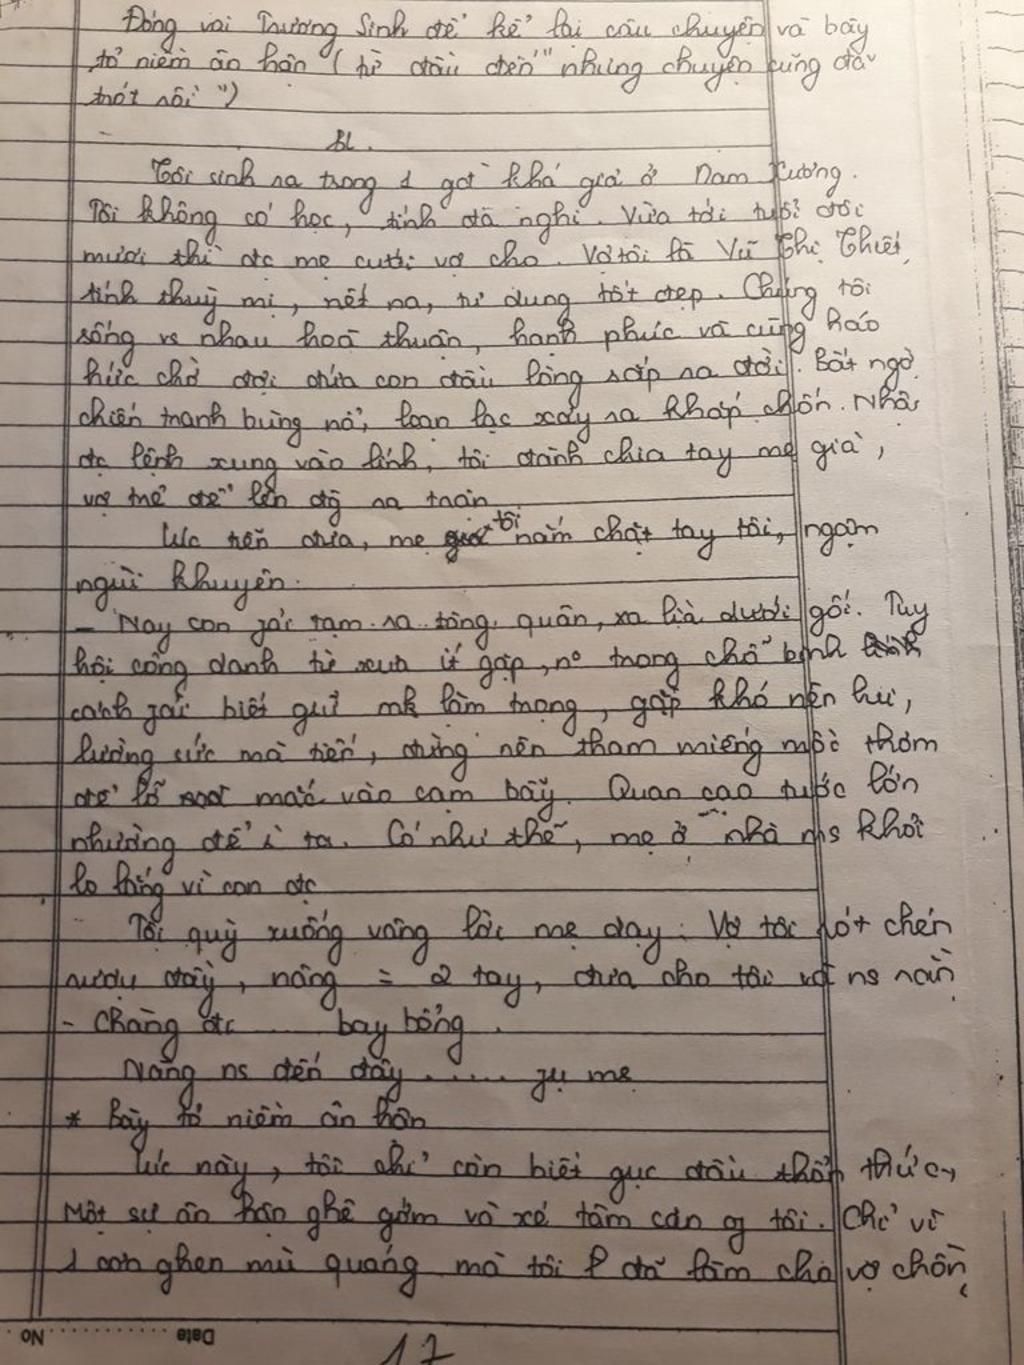 Đóng vai Trương Sinh để kể lại câu chuyện và bày
tỏ niềm ân hận ( từ đầu đến " nhưng chuyện cũng đã
trót rồi ")
BL.
Tôi sinh ra trong 1 gđ khá giả ở Nam Xương.
Tôi không có học, tính đa nghi. Vừa tới tuổi đôi
mươi thì đc mẹ cưới vợ cho. Vợ tôi là Vũ Thị Thiết,
tính thuỳ mị, nết na, tư dung tốt đẹp. Chúng tôi
sống vs nhau hoà thuận, hạnh phúc và cũng háo
hức chờ đợi đứa con đầu lòng sắp ra đời. Bất ngờ
chiến tranh bùng nổ, loạn lạc xảy ra khắp chốn. Nhận
đc lệnh xung vào lính, tôi đành chia tay mẹ già,
vợ trẻ để lên đg ra trận
Lúc tiễn đưa, mẹ tôi nắm chặt tay tôi, ngậm
ngùi khuyên:
- Nay con fải tạm ra tòng quân, xa lìa dưới gối. Tuy
hội công danh từ xưa ít gặp, no trong chỗ binh
cánh fải biết giữ mk làm trọng, gặp khó nên lui,
lường sức mà tiến, đừng nên tham miếng mồi thơm
để lỡ mắc vào cạm bẫy. Quan cao tước lớn
nhường để ta. Có như thế, mẹ ở nhà ms khỏi
lo lắng vì con đc
Tôi quỳ xuống vâng lời mẹ dạy. Vợ tôi rót chén
rượu đầy, nâng = 2 tay, đưa cho tôi và ns rằng
- Chàng đc ...... bay bổng.
Nàng ns đến đây ..... mẹ
* Bày tỏ niềm ân hận
Lúc này, tôi chỉ còn biết gục đầu thổn thức,
Một sự ân hận ghê gớm vò xé tâm can of tôi. Chỉ vì
1 cơn ghen mù quáng mà tôi đã làm cho vợ chồng
No
Date
17